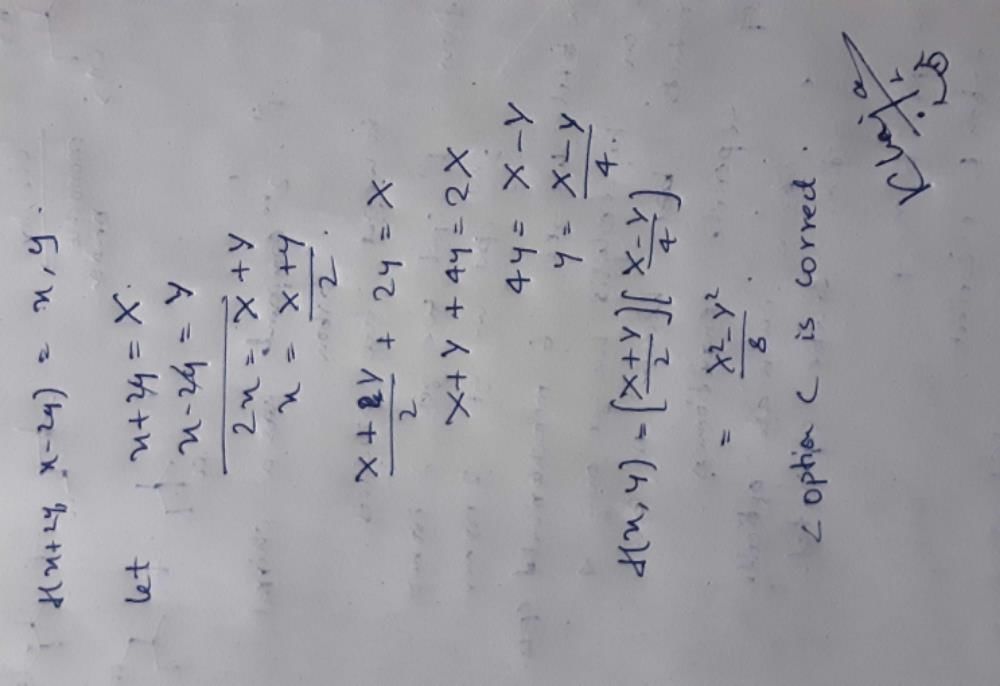 f(x+2y, x-2y) = x, y.
let x+2y = X.
x-2y = Y
2x = X+Y
x = X+Y/2
X+Y/2 + 2y = X
X+Y+4y = 2X
4y = X-Y
y = X-Y/4
f(x,y) = [X+Y/2][X-Y/4]
= X²-Y²/8.
∠ option C is correct.